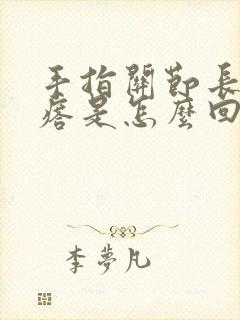 手指關節長
痞是怎麼回
李夢凡